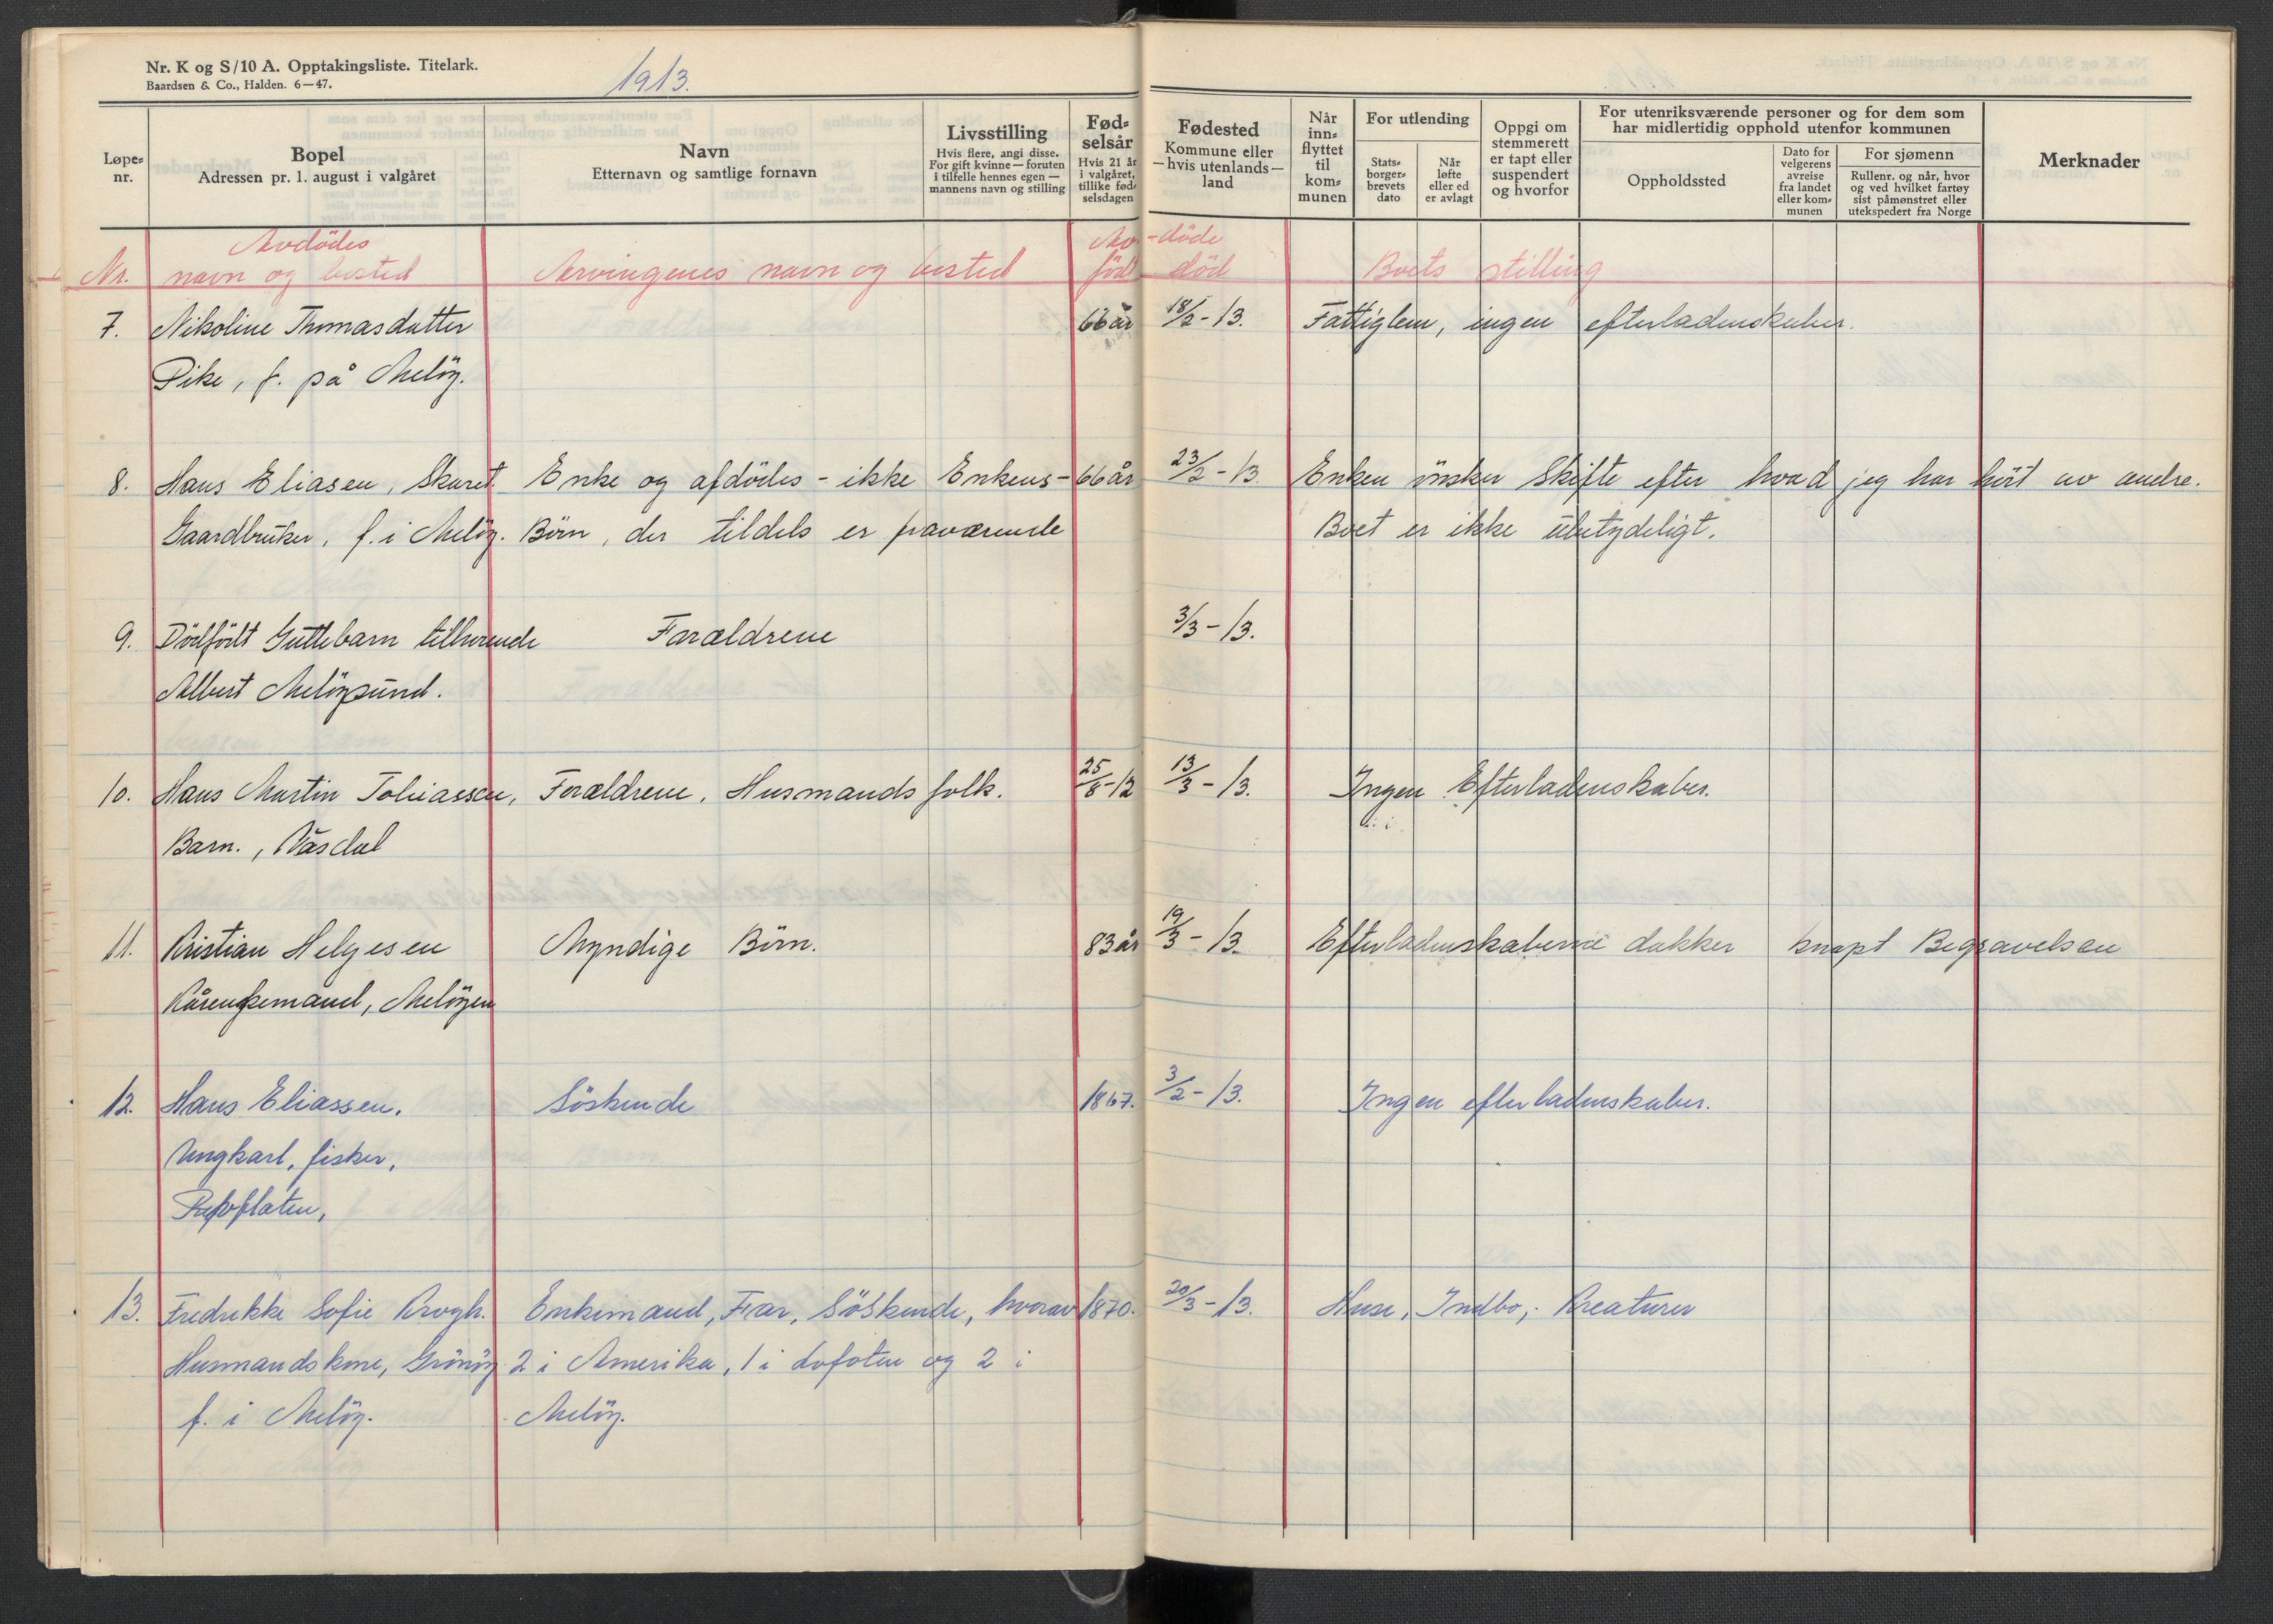 Nr. K og S/10 A. Opptakingsliste. Titelark.
Baardsen & Co., Halden. 6—47.
1913.
Løpe-nr.
Bopel
Adressen pr. 1. august i valgåret
Navn
Etternavn og samtlige fornavn
Livsstilling
Hvis flere, angi disse.
For gift kvinne — foruten
i tilfelle hennes egen —
mannens navn og stilling
Fød-
selsår
Hvis 21 år
i valgåret,
tillike fød-
selsdagen
Fødested
Kommune eller
— hvis utenlands —
land
Når
inn-
flyttet
til
kom-
munen
For utlending
Stats-
borger-
brevets
dato
Når
løfte
eller ed
er avlagt
Oppgi om
stemmerett
er tapt eller
suspendert
og hvorfor
For utenriksværende personer og for dem som
har midlertidig opphold utenfor kommunen
Oppholdssted
Dato for
velgerens
avreise
fra landet
eller kom-
munen
For sjømenn
Rullenr. og når, hvor
og ved hvilket fartøy
sist påmønstret eller
utekspedert fra Norge
Merknader
Avdödes Av- döde
Nr. navn og bosted Arvingenes navn og bosted född död Boets stilling
7. Nikoline Thomasdatter 66 år 18/2 - 13. Fattiglem, ingen efterladenskaber.
Pike, f. på Melöy.
8. Hans Eliasen, Skaret. Enke og afdödes - ikke Enkens - 66 år 23/2 - 13 Enken önsker Skifte efter hvad jeg har hört av andre.
Gaardbruker, f. i Melöy. Börn, der tildels er fraværende Boet er ikke ubetydeligt.
9. Dödfödt Guttebarn tilhörende Forældrene 3/3 - 13.
Albert Melöysund.
10. Hans Martin Tobiassen, Forældrene, Husmandsfolk. 25/8 - 12 13/3 - 13. Ingen Efterladenskaber.
Barn., Våsdal
11. Kristian Helgesen Myndige Börn. 83 år 19/3 - 13. Efterladenskaberne dækker knapt Begravelsen
Kårenkemand, Melöyen
12. Hans Eliassen. Söskende 1867. 3/2 - 13. Ingen efterladenskaber.
Ungkarl, fisker,
13. Fredrikke Sofie Krogh. Enkemand, Far, Söskende, hvorav 1870. 20/3 - 13. Huse, Indbo, Kreaturer
Husmandskone, Grönöy 2 i Amerika, 1 i Lofoten og 2 i
f. i Melöy. Melöy.